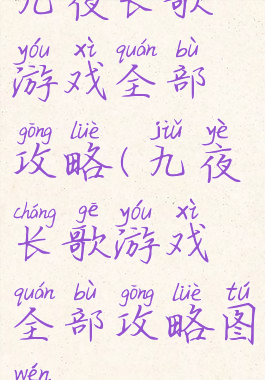 九夜长歌
yóu xì quán bù
游戏全部
gōng lüè jiǔ yè
攻略(九夜
cháng gē yóu xì
长歌游戏
quán bù gōng lüè tú
全部攻略图
wén